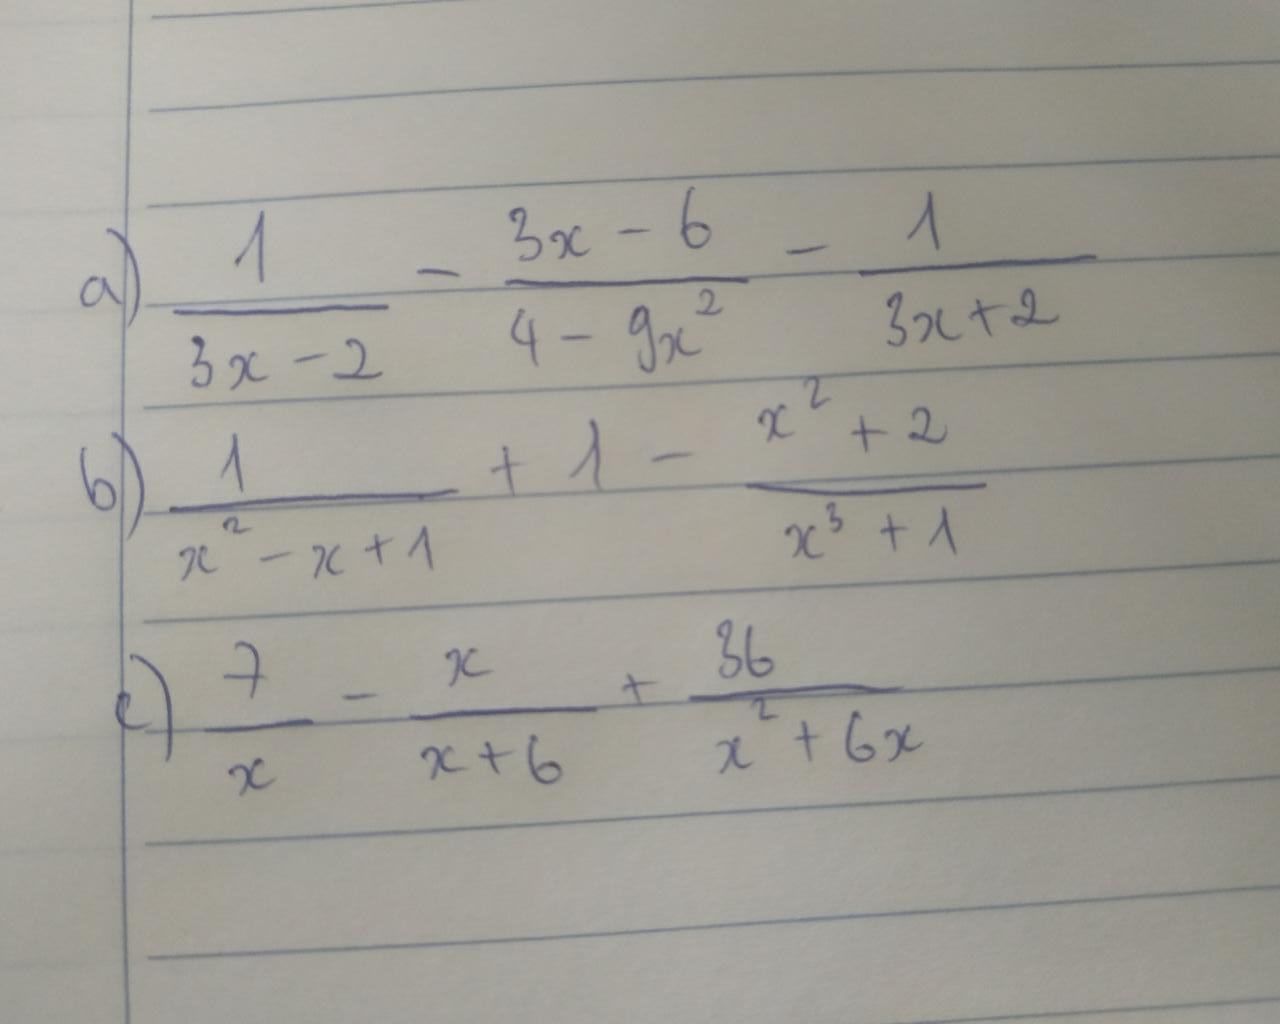 a) \frac{1}{3x-2} - \frac{3x-6}{4-9x^2} - \frac{1}{3x+2}
b) \frac{1}{x^2-x+1} + 1 - \frac{x^2+2}{x^3+1}
c) \frac{7}{x} - \frac{x}{x+6} + \frac{36}{x^2+6x}